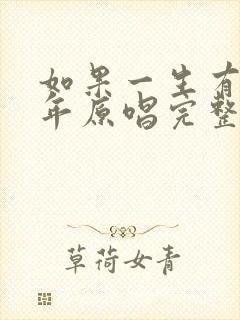 如果一生有
年原唱完整
草荷女青